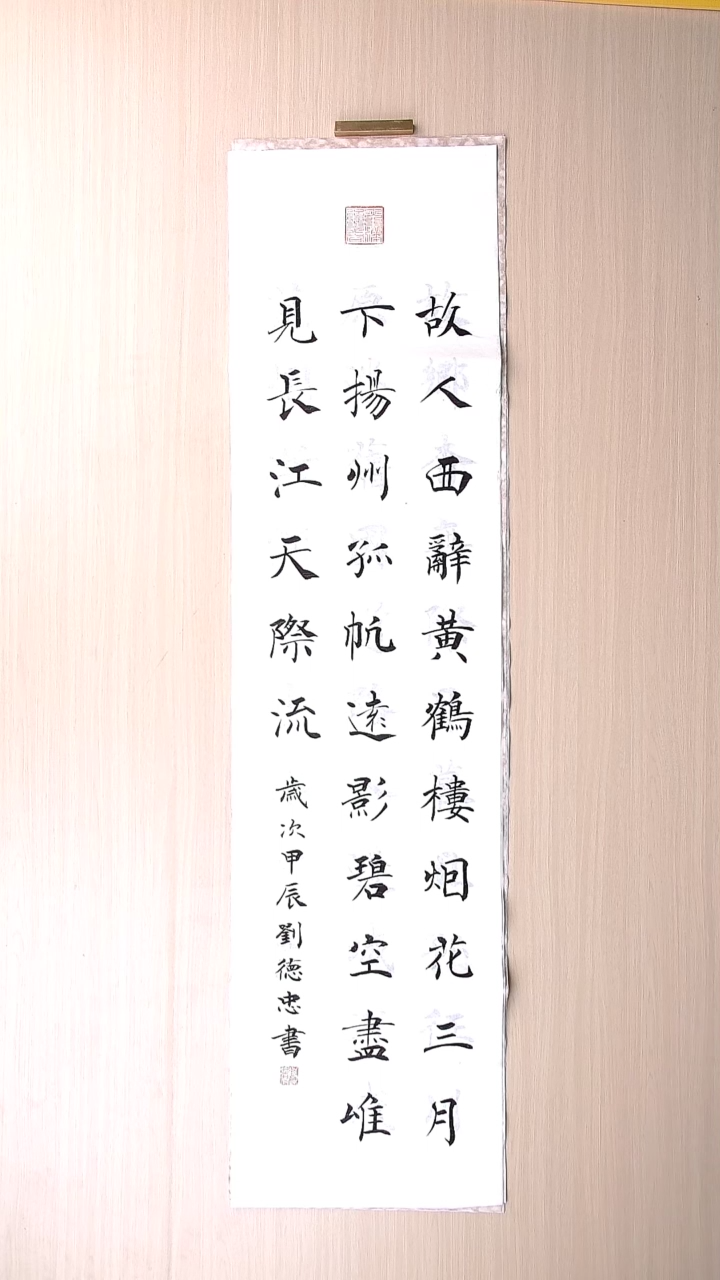 故人西辭黄鶴樓烟花三月
下揚州孤帆遠影碧空盡唯
見長江天際流
歲次甲辰劉德忠書